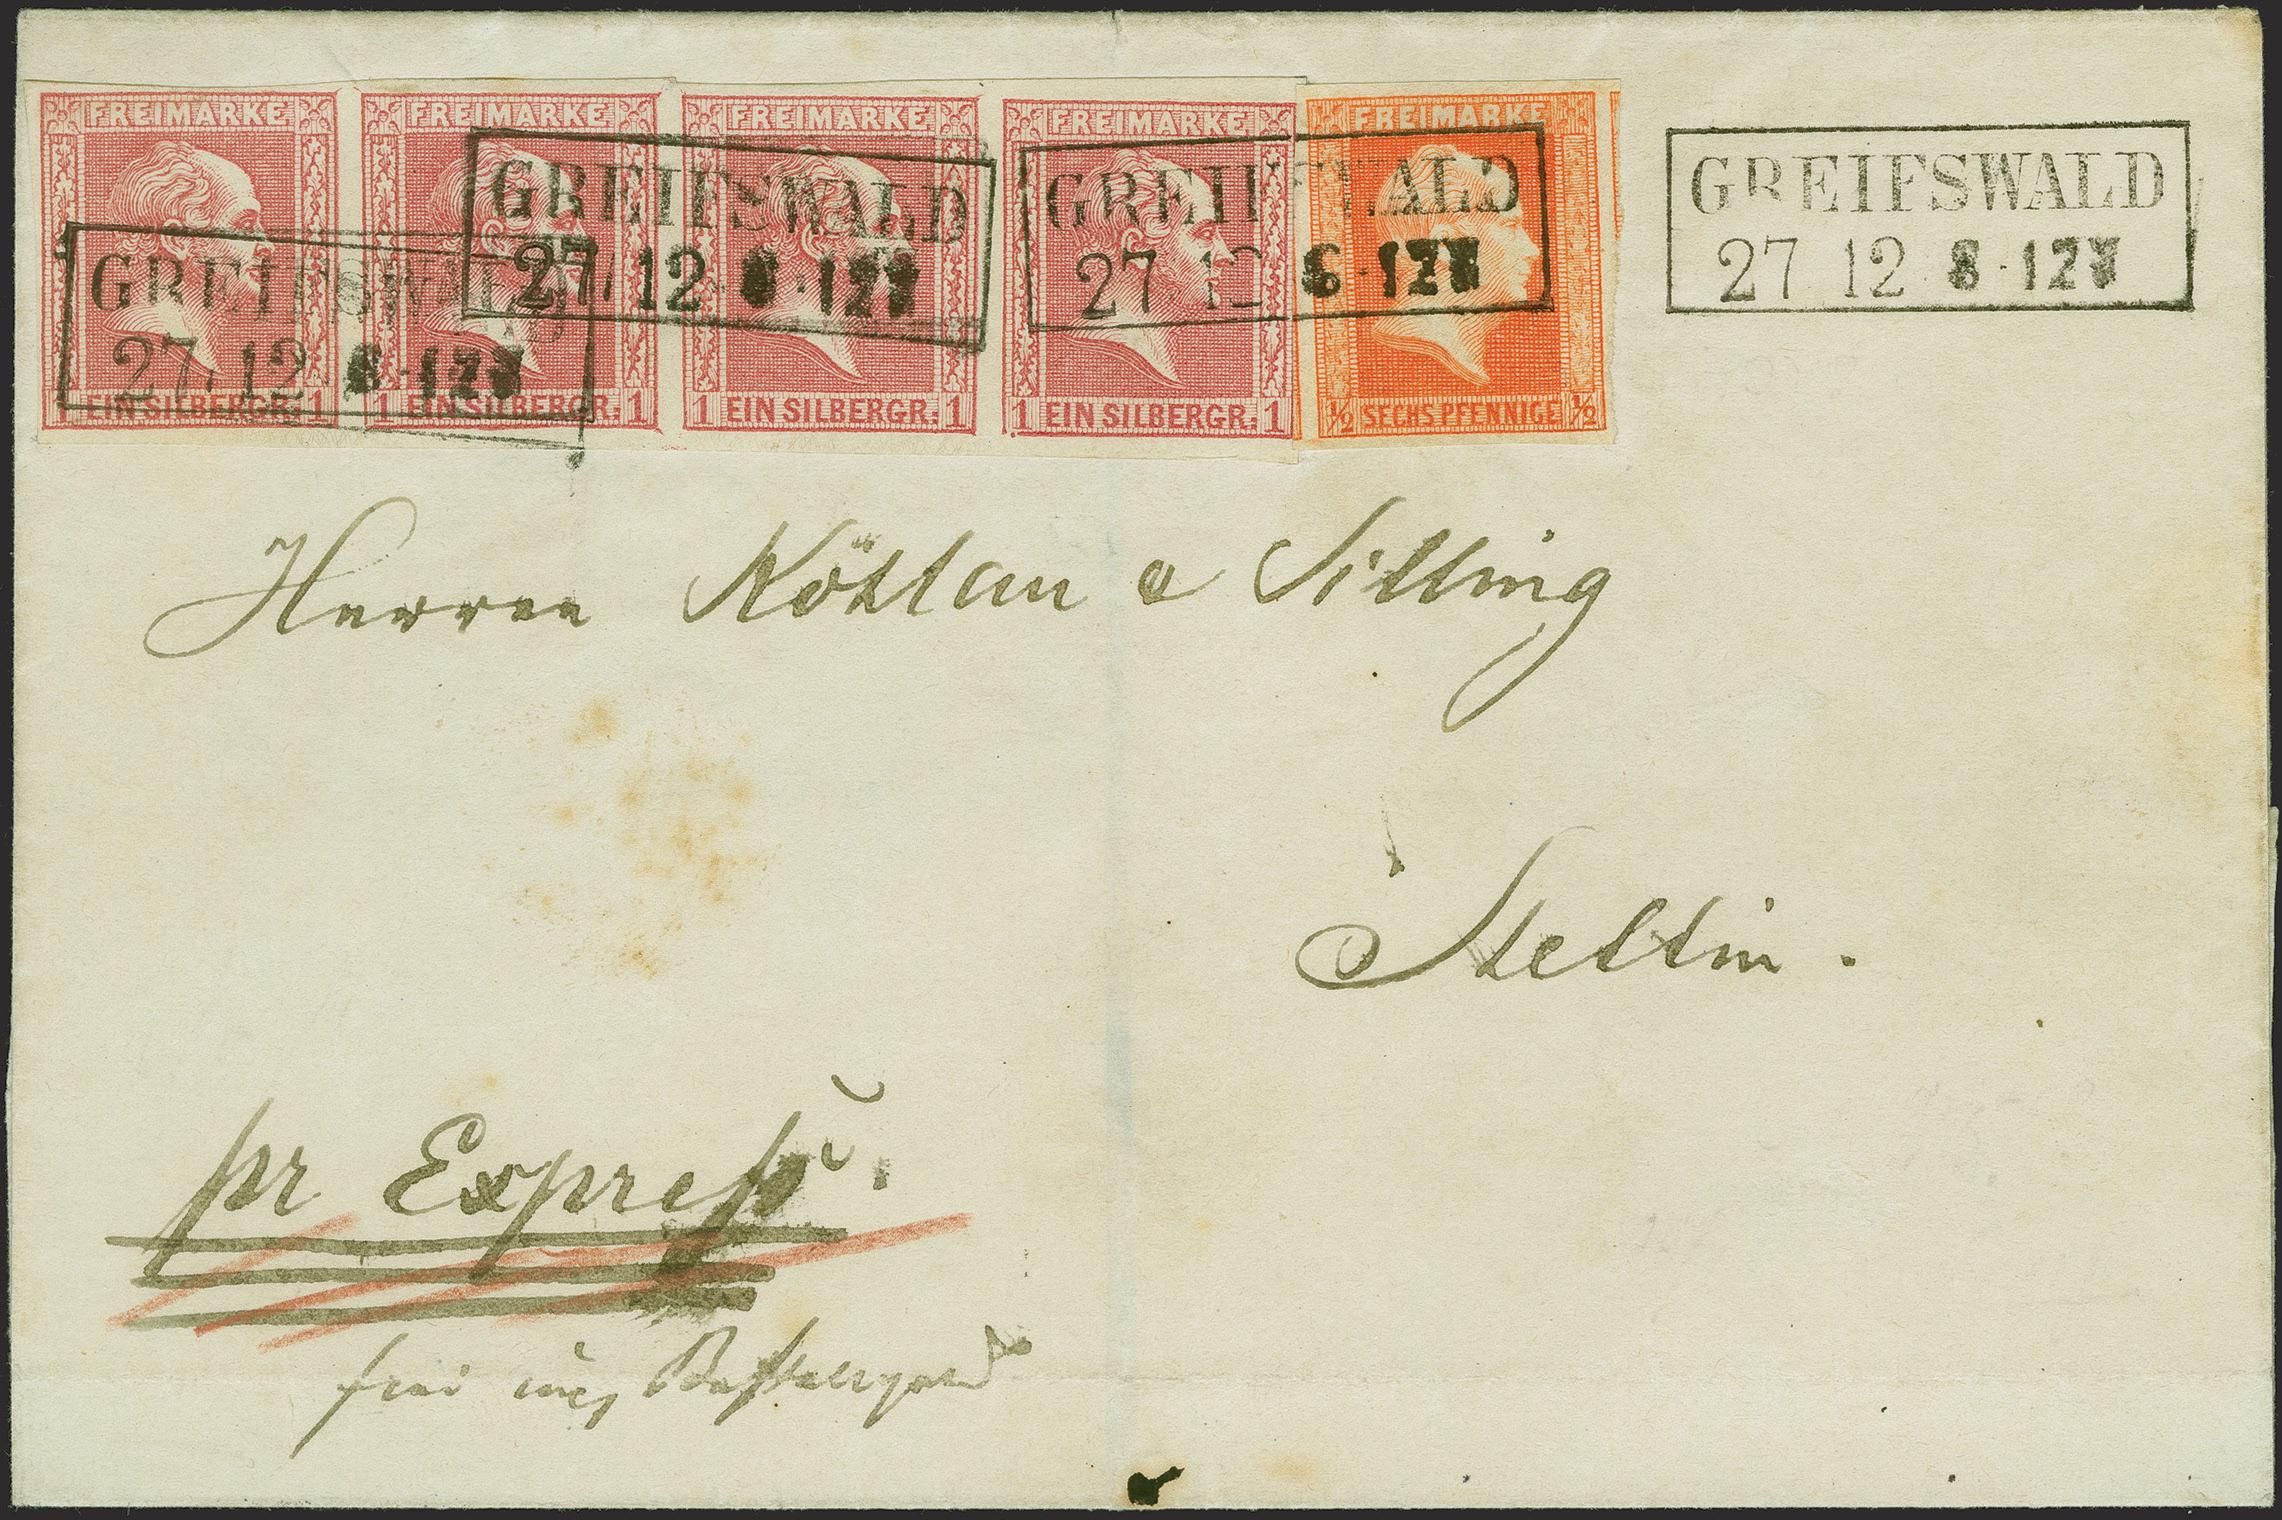 FREIMARKE FREIMARKE FREIMARKE FREIMARKE FREIMARKE
GREIFSWALD
27 12 8-12
GREIFSWALD
27 12 8-12
GREIFSWALD
27 12 8-12
GREIFSWALD
27 12 8-12
EIN SILBERGR: 1
1 EIN SILBERGR: 1
1 EIN SILBERGR: 1
1 EIN SILBERGR: 1
1/2 SECHS PFENNIGE 1/2
Herren
Stettin.
pr Express.
frei Bestellgeld